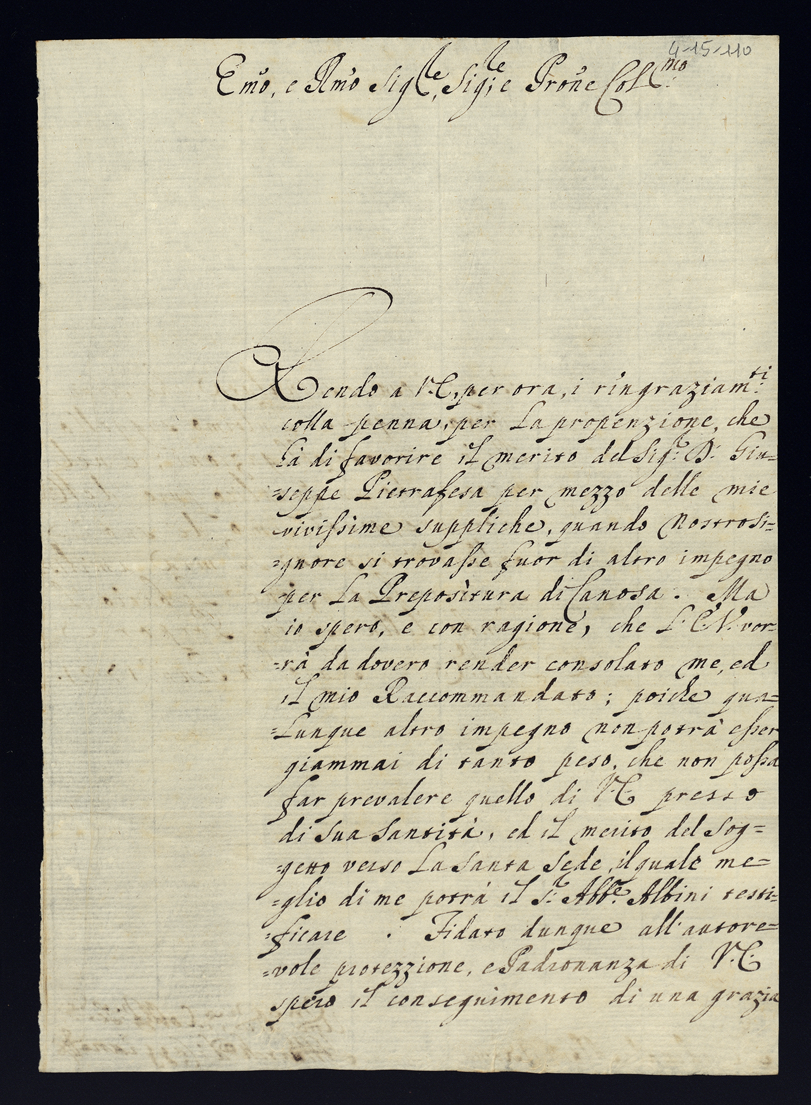 4-15-110
Em̃o, e Rm̃o Sig.re, Sig.re e Pron̄e Col.mo
Rendo a V.E. per ora, i ringraziam.ti
colla penna, per la propenzione, che
hà di favorire il merito del Sig.r D. Giu=
=seppe Pietrafesa per mezzo delle mie
vivissime suppliche, quando Nostro Si=
=gnore si trovasse fuor di altro impegno
per la Prepositura di Canosa. Ma
io spero, e con ragione, che L'E.V. vor=
=rà da dovero render consolato me, ed
il mio Raccommandato; poiche qua=
=lunque altro impegno non potrà esser
giammai di tanto peso, che non possa
far prevalere quello di V.E. presso
di Sua Santità, ed il merito del Sog=
=getto verso La Santa Sede, il quale me=
=glio di me potrà il S.r Abb.e Albini testi=
=ficare. Fidato dunque all'autore=
=vole protezzione, e Padronanza di V.E.
spero il conseguimento di una grazia